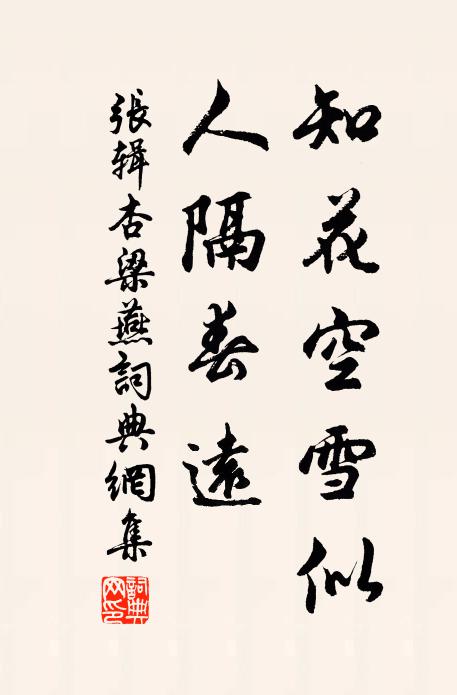 知花空雪似
人隔春遠
張輯杏梁燕詞典網集
詞典网印